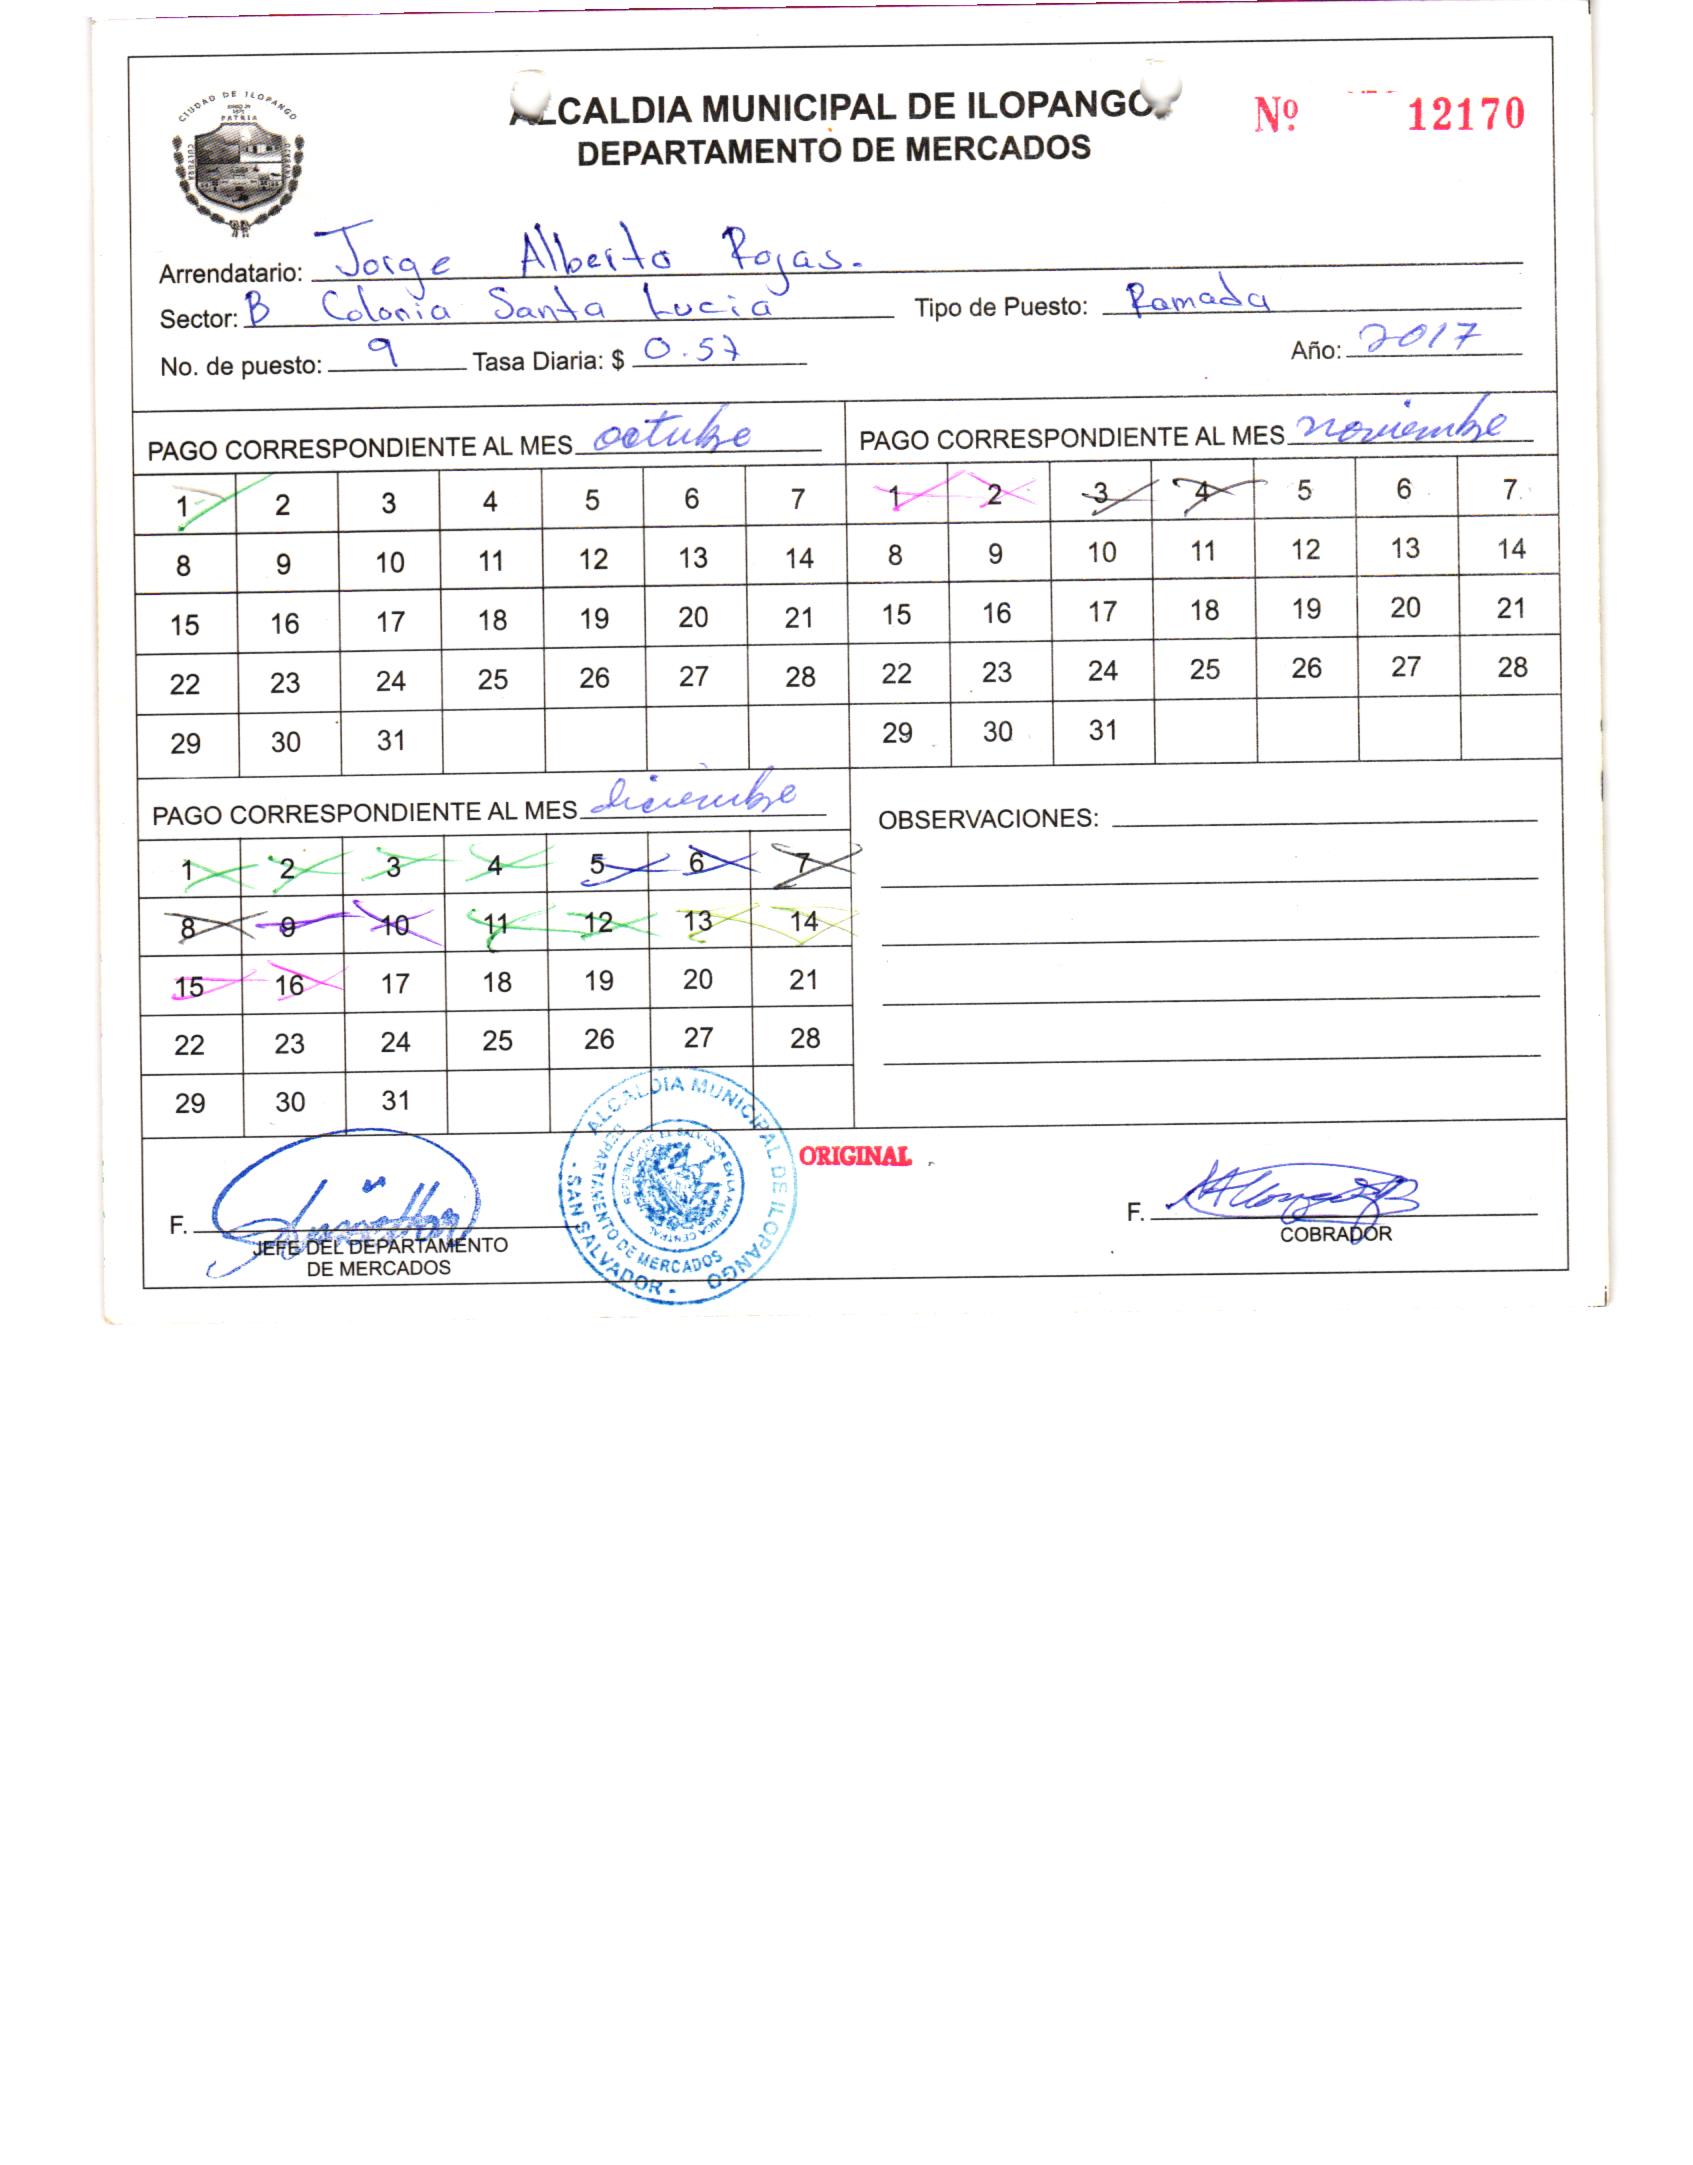 CIUDAD DE ILOPANGO
PATRIA
ALCALDIA MUNICIPAL DE ILOPANGO
DEPARTAMENTO DE MERCADOS
Nº 12170
Arrendatario: Jorge Alberto Rojas.
Sector: B Colonia Santa Lucia Tipo de Puesto: Ramada
No. de puesto: 9 Tasa Diaria: $ 0.57 Año: 2017
PAGO CORRESPONDIENTE AL MES octubre
1 2 3 4 5 6 7
8 9 10 11 12 13 14
15 16 17 18 19 20 21
22 23 24 25 26 27 28
29 30 31
PAGO CORRESPONDIENTE AL MES noviembre
1 2 3 4 5 6 7
8 9 10 11 12 13 14
15 16 17 18 19 20 21
22 23 24 25 26 27 28
29 30 31
PAGO CORRESPONDIENTE AL MES diciembre
1 2 3 4 5 6 7
8 9 10 11 12 13 14
15 16 17 18 19 20 21
22 23 24 25 26 27 28
29 30 31
OBSERVACIONES:
F.
JEFE DEL DEPARTAMENTO
DE MERCADOS
ALCALDIA MUNICIPAL DE ILOPANGO
DEPARTAMENTO DE MERCADOS
REPUBLICA DE EL SALVADOR EN LA AMERICA CENTRAL
- SAN SALVADOR -
ORIGINAL
F.
COBRADOR